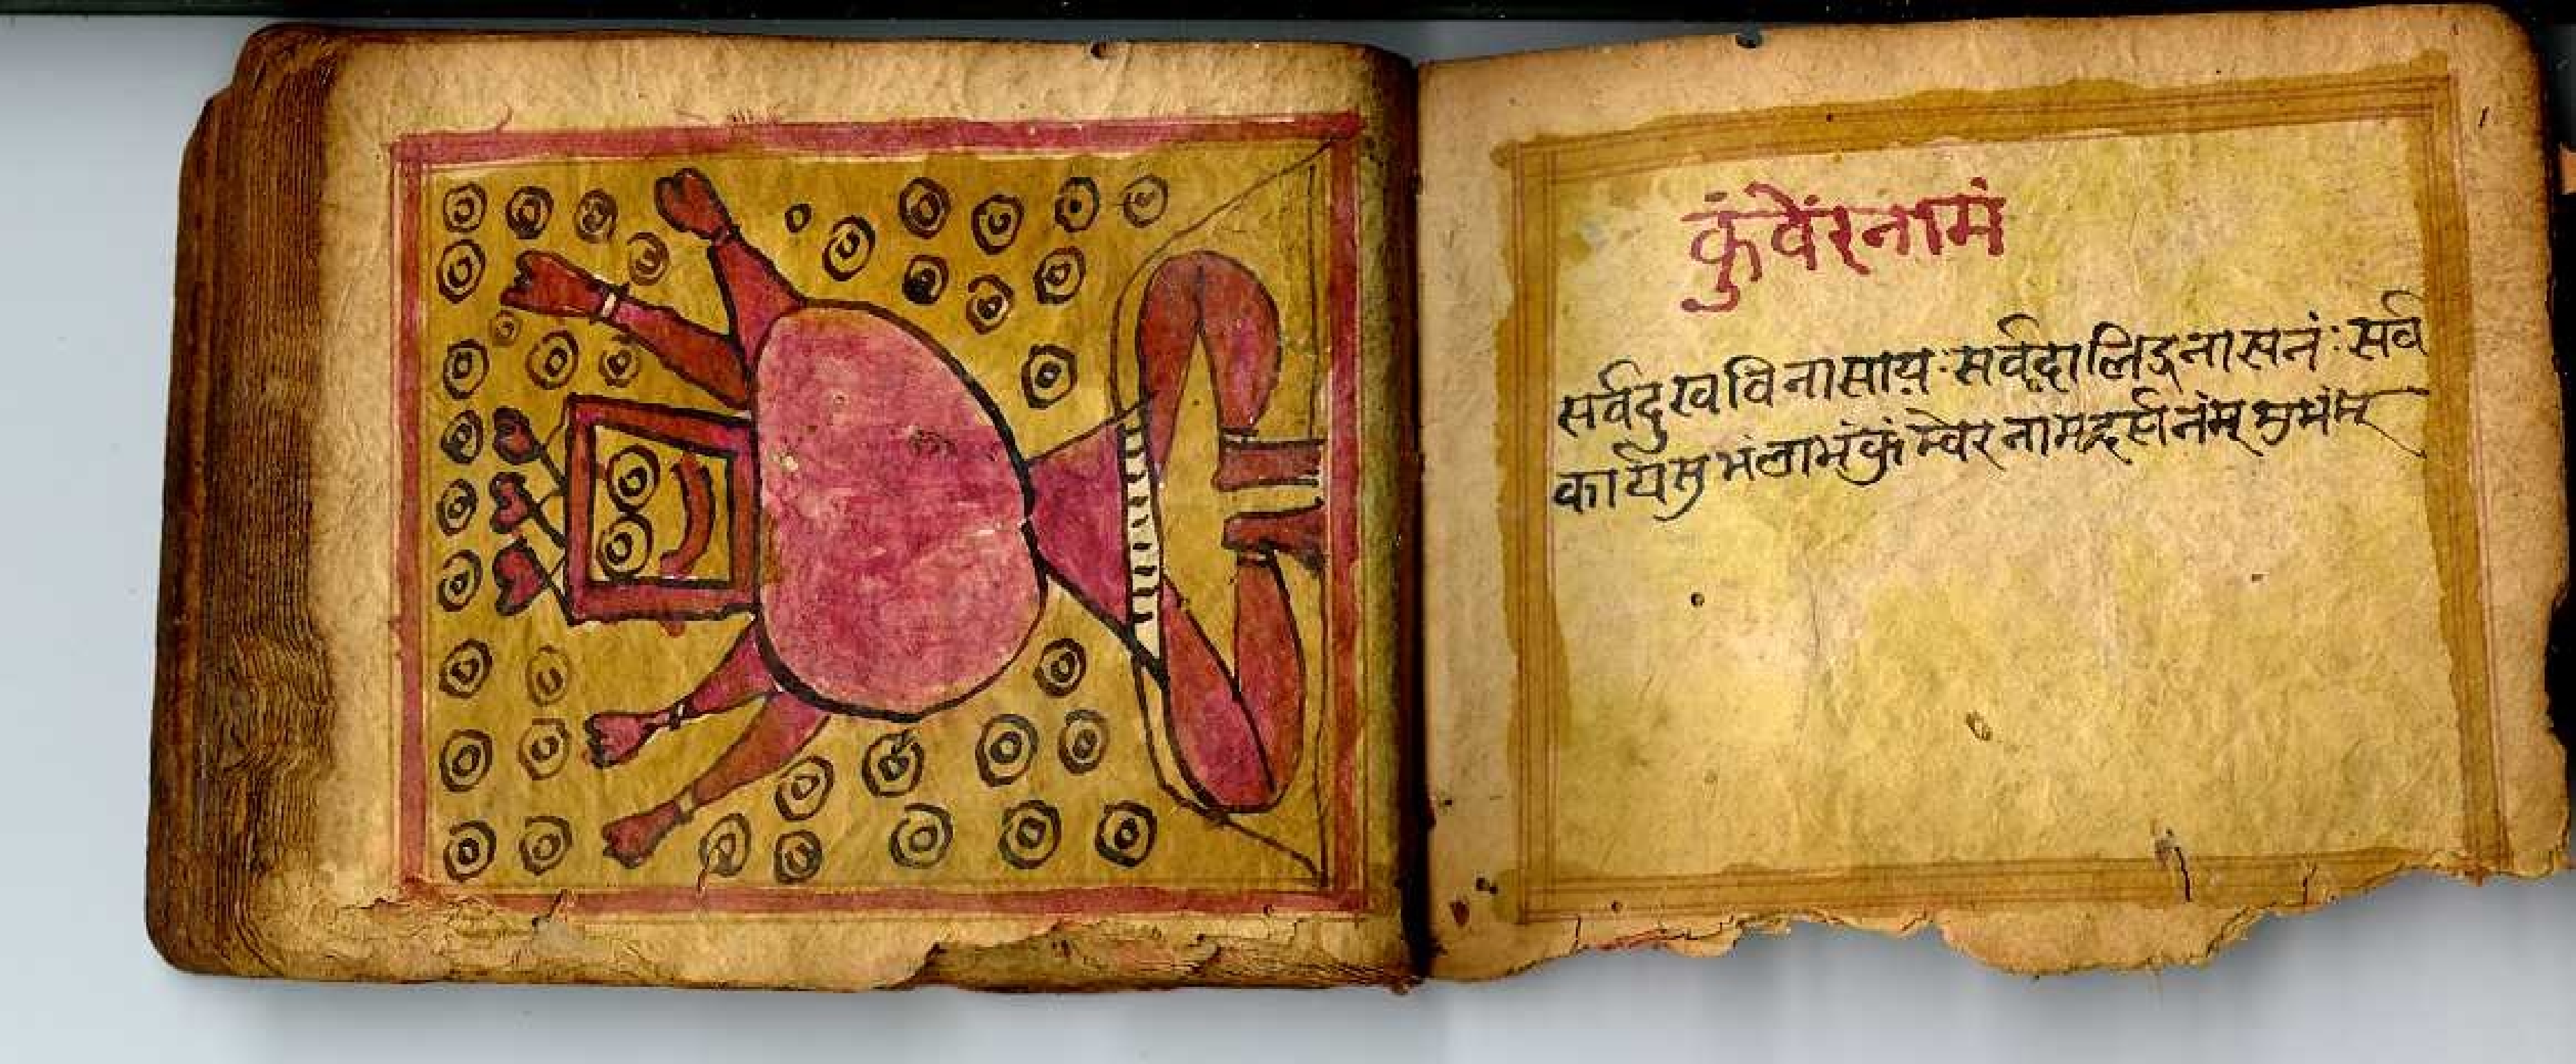 कुंवेंरनामं
सर्वदुखविनासाय:सर्वदालिद्रनासनं:सर्व
कार्यसुभंलाभंकुंम्वेरनामदर्सनंम्सुभंम्